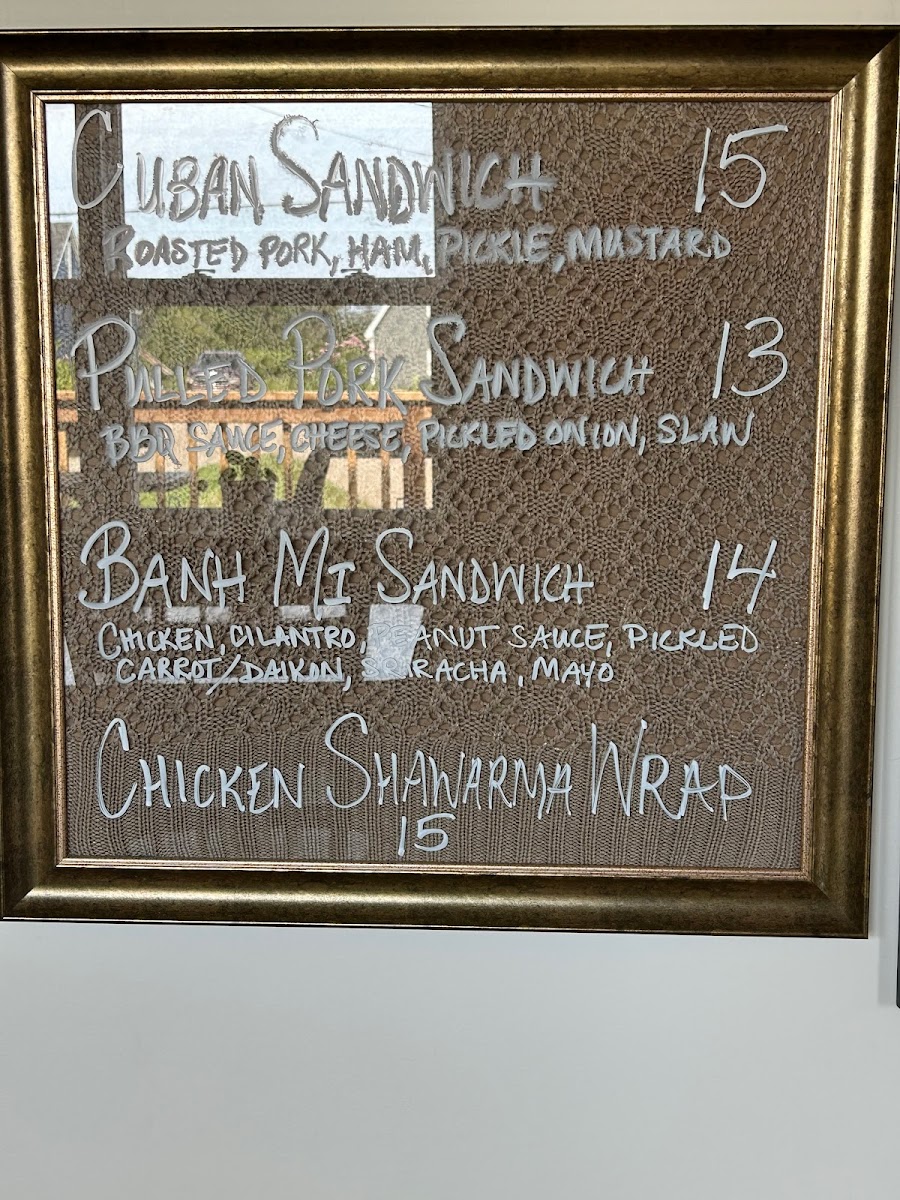 CUBAN SANDWICH 15
ROASTED PORK, HAM, PICKLE, MUSTARD
PULLED PORK SANDWICH 13
BBQ SAUCE, CHEESE, PICKLED ONION, SLAW
BANH MI SANDWICH 14
CHICKEN, CILANTRO, PEANUT SAUCE, PICKLED
CARROT/DAIKON, SRIRACHA, MAYO
CHICKEN SHAWARMA WRAP
15